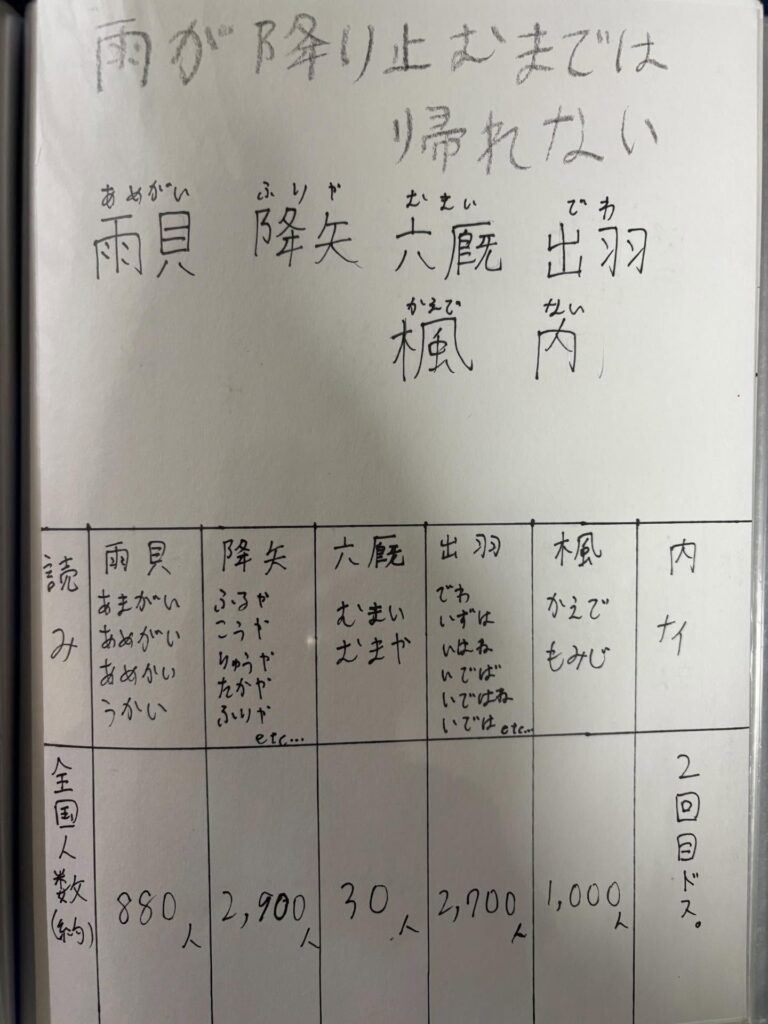 雨が降り止むまでは
帰れない
あめがい ふりや むまい でわ
雨貝 降矢 六厩 出羽
かえで ない
楓 内
読み 雨貝 降矢 六厩 出羽 楓 内
あまがい
あめがい
あめかい
うかい
ふるや
こうや
ちゅうや
たかや
ふりや
etc...
むまい
むまや
でわ
いずは
いはね
いでば
いではね
いでは etc...
かえで
もみじ
ナイ
全国人数(約) 880人 2,900人 30人 2,700人 1,000人 2回目ドス。